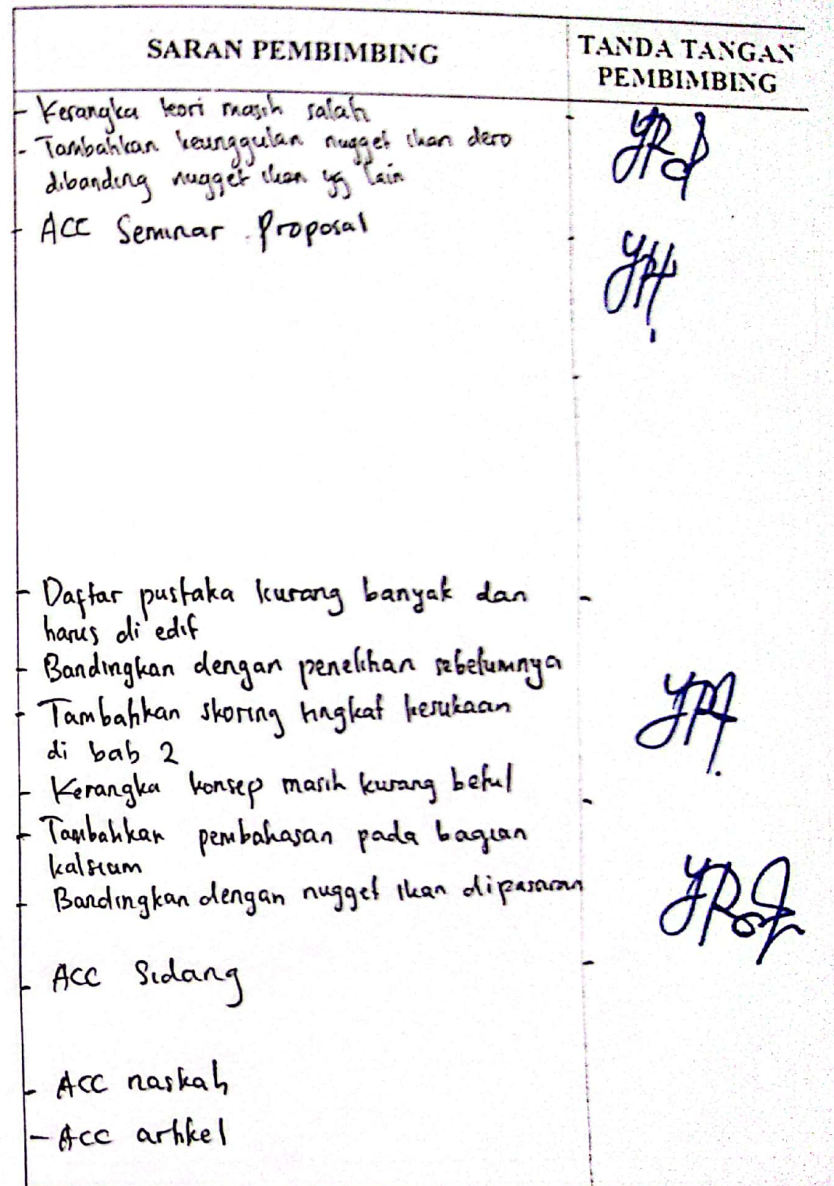 SARAN PEMBIMBING
TANDA TANGAN
PEMBIMBING
- Kerangka teori masih salah
- Tambahkan keunggulan nugget ikan dero
dibanding nugget ikan yg lain
- ACC Seminar Proposal
- Daftar pustaka kurang banyak dan
harus di edit
- Bandingkan dengan penelitian sebelumnya
- Tambahkan skoring tingkat kesukaan
di bab 2
- Kerangka konsep masih kurang betul
- Tambahkan pembahasan pada bagian
kalsium
- Bandingkan dengan nugget ikan dipasaran
- ACC Sidang
- ACC naskah
- ACC artikel